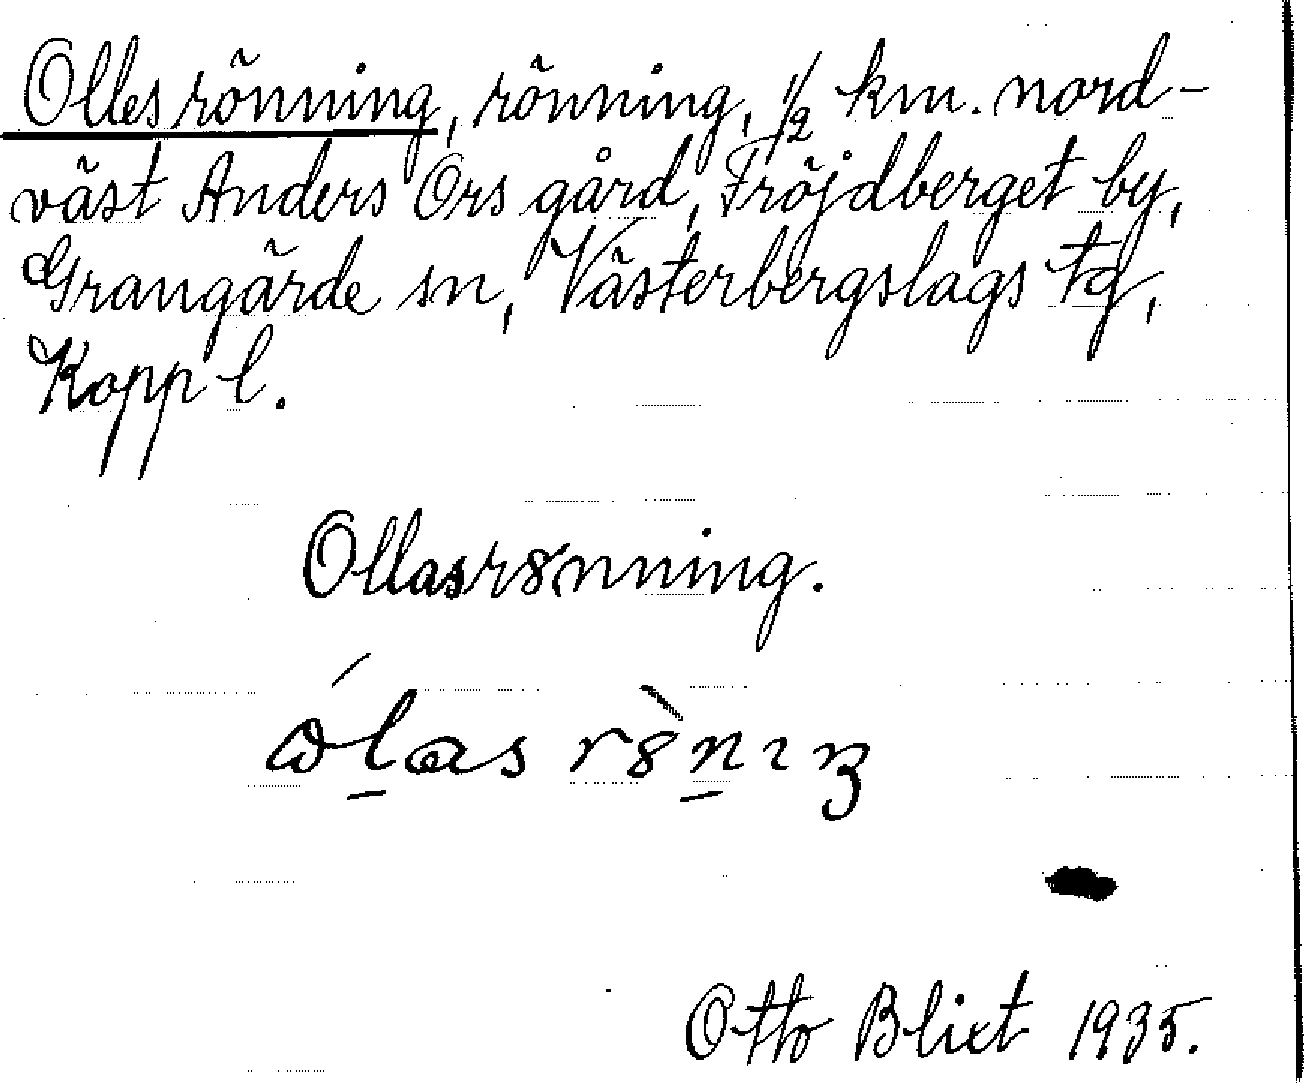 Ollesrönning, rönning, 1/2 km. nord-
väst Anders Ors gård, Fröjdberget by,
Grangärde sn, Västerbergslags tg,
Kopp l.
Ollasr8nning.